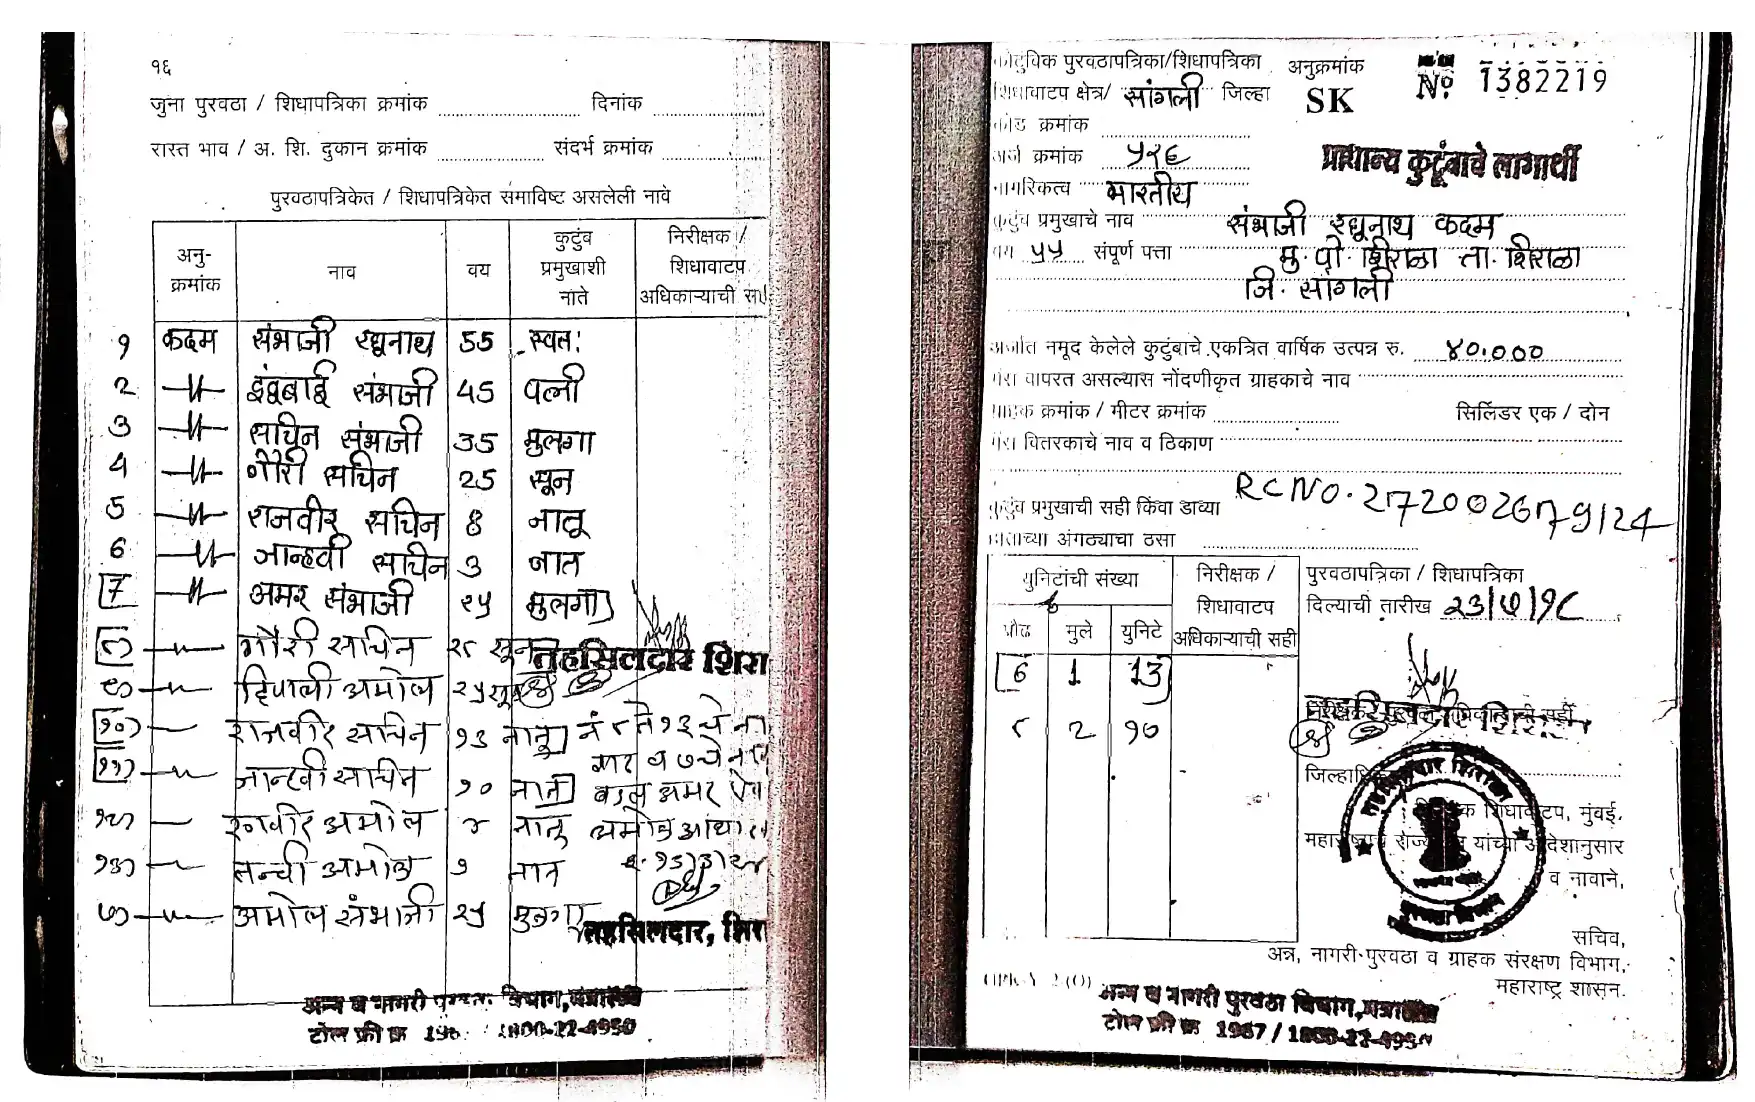 १६
जुना पुरवठा / शिधापत्रिका क्रमांक दिनांक
रास्त भाव / अ. शि. दुकान क्रमांक संदर्भ क्रमांक
पुरवठापत्रिकेत / शिधापत्रिकेत समाविष्ट असलेली नावे
अनु-क्रमांक नाव वय कुटुंब प्रमुखाशी नाते निरीक्षक / शिधावाटप अधिकाऱ्याची
१ कदम संभाजी रघुनाथ 55 स्वतः
2 -11- इंदुबाई संभाजी 45 पत्नी
3 -11- सचिन संभाजी 35 मुलगा
4 -11- गौरी सचिन 25 सून
5 -11- राजवीर सचिन 8 नातू
6 -11- जान्हवी सचिन 3 नात
7 -11- अमर संभाजी २५ मुलगा
८) गौरी सचिन २८ सून
तहसिलदार शिरा
९) दिपाली अमोल २५ सून
१०) राजवीर सचिन १३ नातू नं ८ ते १३ चे
११) जान्हवी सचिन १० नात
१२) रणवीर अमोल ४ नातू
१३) तन्वी अमोल १ नात
७) अमोल संभाजी २५ मुलगा
तहसिलदार, शिरा
अन्न व नागरी पुरवठा विभाग, मंत्रालय
टोल फ्री क्र 196 1800-22-4950
कौटुंबिक पुरवठापत्रिका/शिधापत्रिका अनुक्रमांक No 1382219
शिधावाटप क्षेत्र/ सांगली जिल्हा SK
कोड क्रमांक
अर्ज क्रमांक ५२६ प्राधान्य कुटूंबाचे लाभार्थी
नागरिकत्व भारतीय
कुटुंब प्रमुखाचे नाव संभाजी रघुनाथ कदम
वय ५५ संपूर्ण पत्ता मु. पो. शिराळा ता. शिराळा
जि. सांगली
अर्जात नमूद केलेले कुटुंबाचे एकत्रित वार्षिक उत्पन्न रु. ४०.०००
गॅस वापरत असल्यास नोंदणीकृत ग्राहकाचे नाव
ग्राहक क्रमांक / मीटर क्रमांक सिलिंडर एक / दोन
गॅस वितरकाचे नाव व ठिकाण
RC NO. 272002679124
कुटुंब प्रमुखाची सही किंवा डाव्या
हाताच्या अंगठ्याचा ठसा
युनिटांची संख्या निरीक्षक / शिधावाटप अधिकाऱ्याची सही
प्रौढ मुले युनिटे
6 1 13
८ 2 १०
पुरवठापत्रिका / शिधापत्रिका
दिल्याची तारीख २३/७/१८
जिल्हाधि
शिधावाटप, मुंबई.
महाराष्ट्राचे राज्य यांच्या आदेशानुसार
व नावाने,
सचिव,
अन्न, नागरी पुरवठा व ग्राहक संरक्षण विभाग,
महाराष्ट्र शासन.
अन्न व नागरी पुरवठा विभाग, मंत्रालय
टोल फ्री क्र 1967 / 1800-22-4950